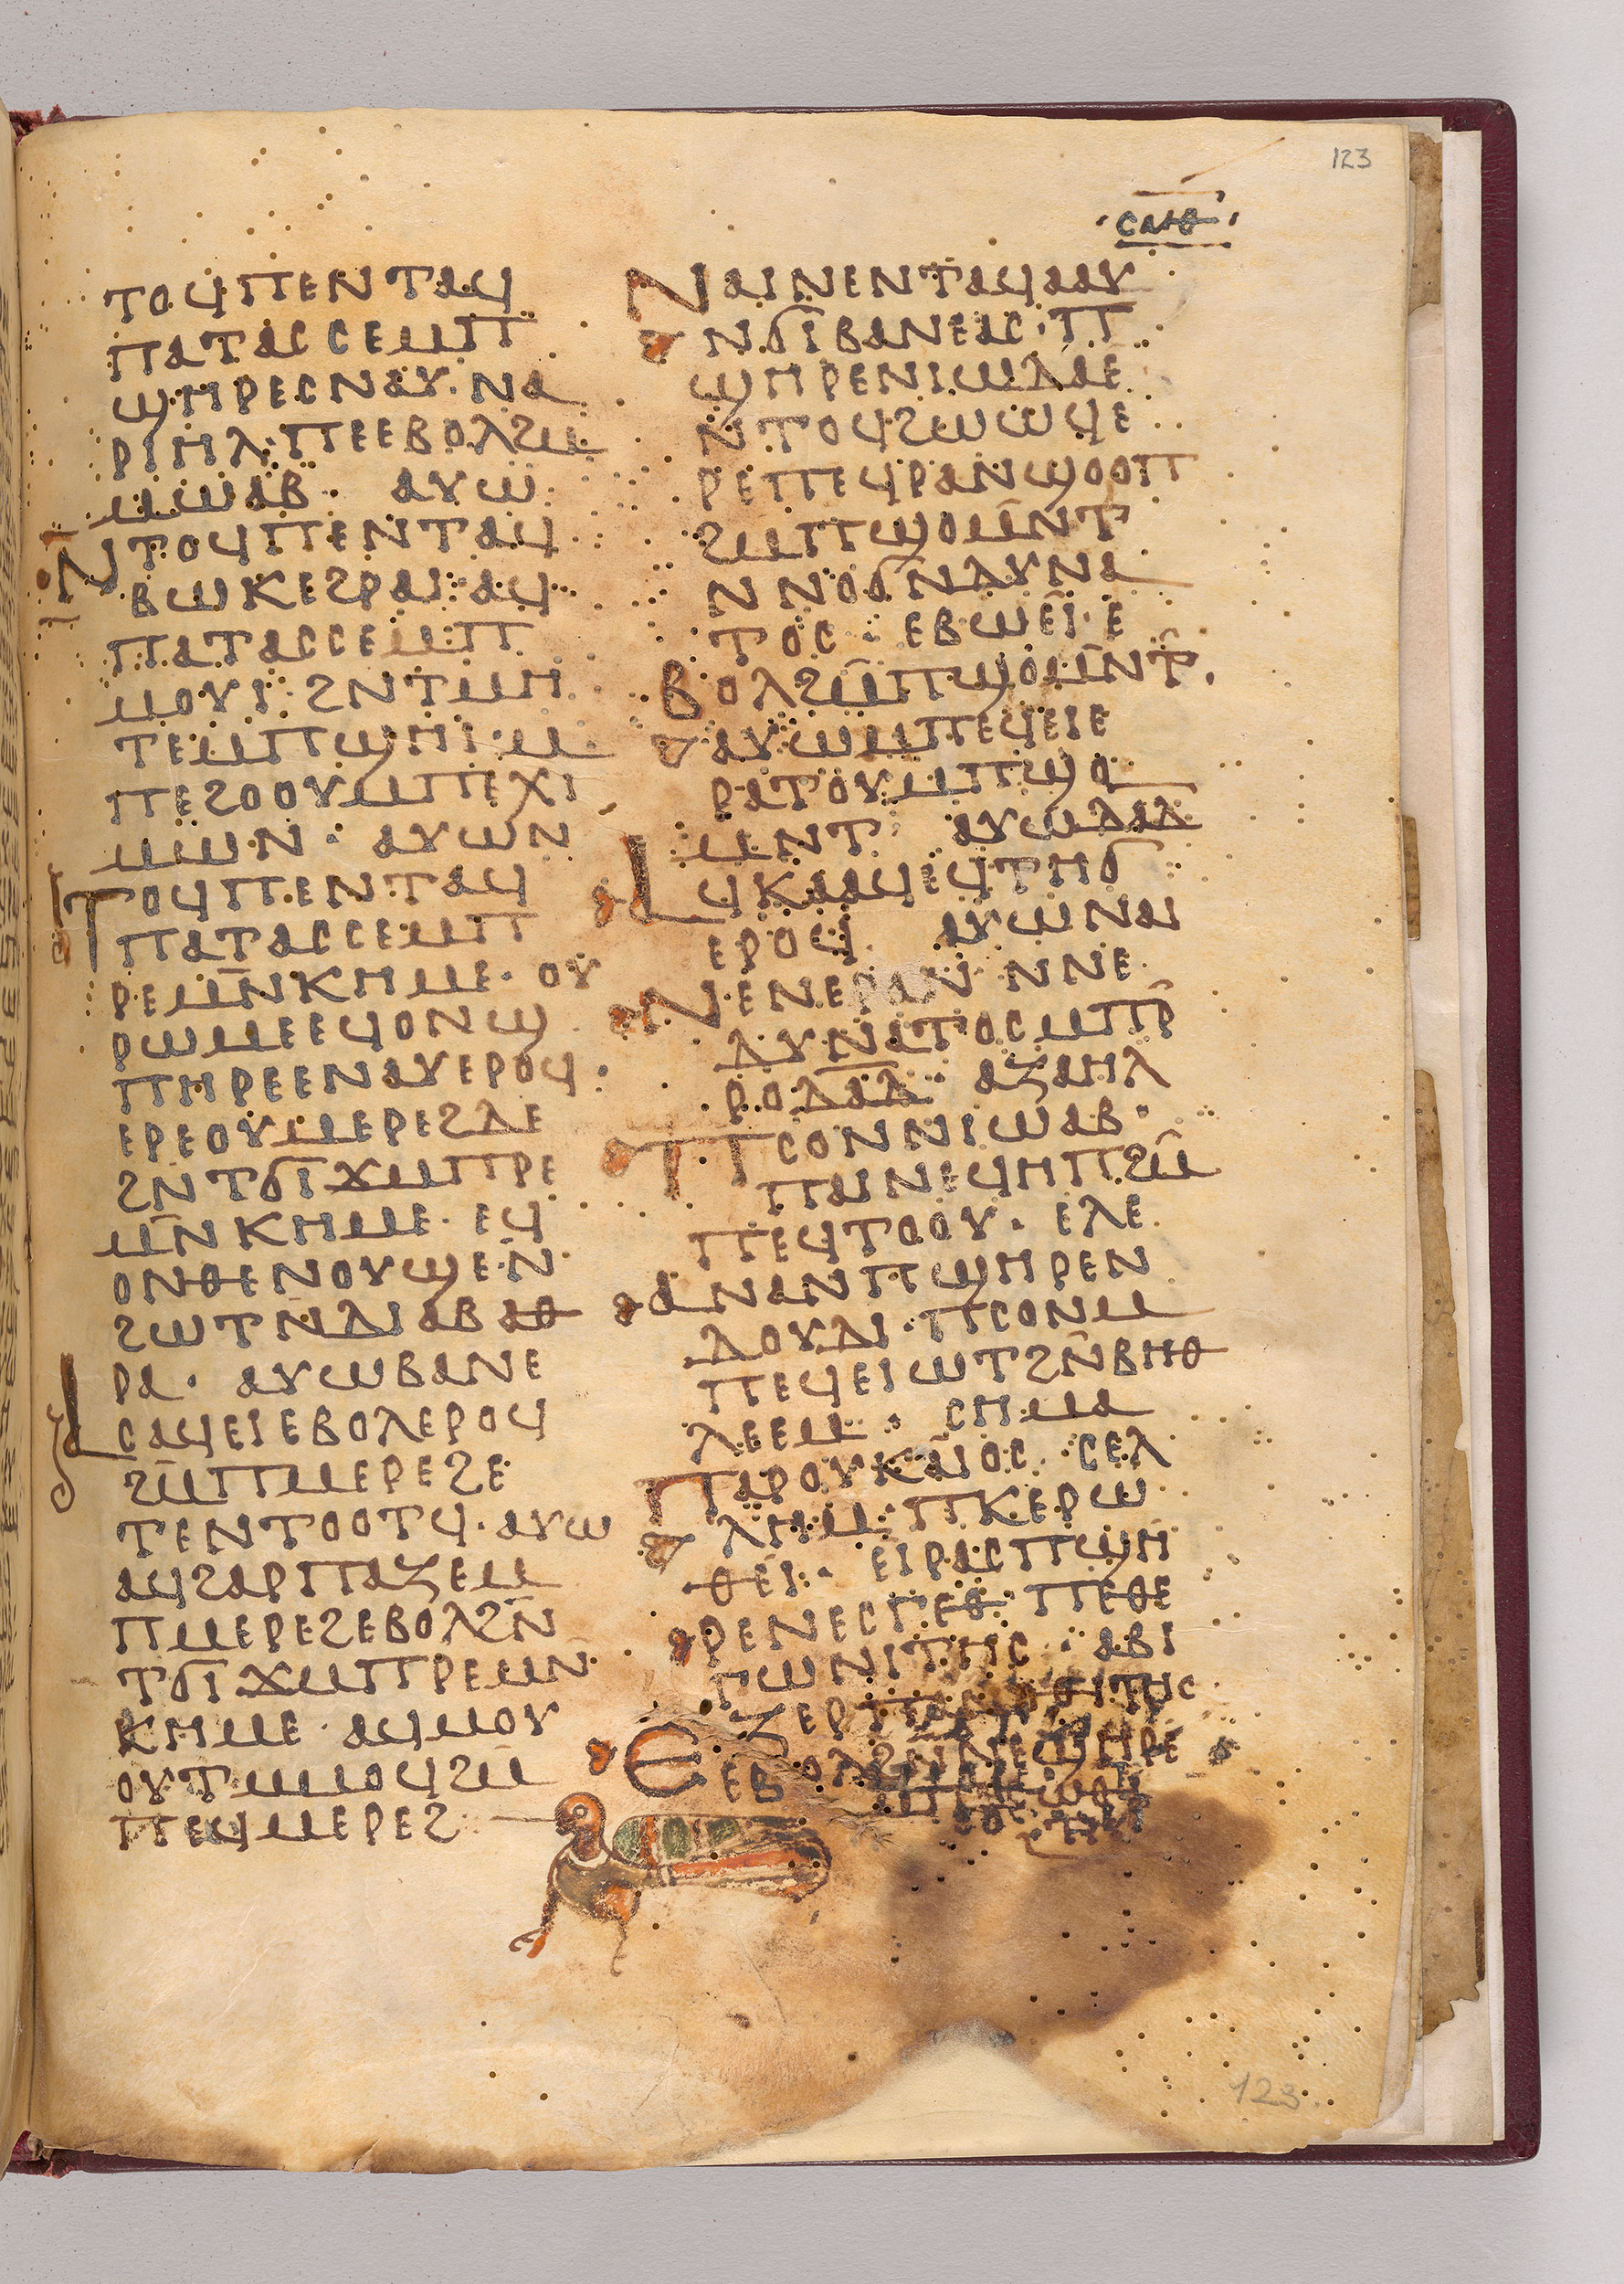 123
ⲤⲚⲐ
ⲦⲞϤⲠⲈⲚⲦⲀϤ
ⲠⲀⲦⲀⲤⲤⲈⲘⲠ
ϢⲎⲢⲈⲤⲚⲀⲨ·ⲚⲀ
ⲢⲒⲎⲖ·ⲠⲈⲈⲂⲞⲖϨⲘ
ⲘⲰⲀⲂ· ⲀⲨⲰ
ⲚⲦⲞϤⲠⲈⲚⲦⲀϤ
ⲂⲰⲔⲈϨⲢⲀⲒ·ⲀϤ
ⲠⲀⲦⲀⲤⲤⲈⲘⲠ
ⲘⲞⲨⲒ·ϨⲚⲦⲘⲎ
ⲦⲈⲘⲠϢⲎⲒ·Ⲙ
ⲠⲈϨⲞⲞⲨⲘⲠⲈⲬⲒ
ⲘⲰⲚ· ⲀⲨⲰⲚ
ⲦⲞϤⲠⲈⲚⲦⲀϤ
ⲠⲀⲦⲀⲤⲤⲈⲘⲠ
ⲢⲈⲘⲚ̄ⲔⲎⲘⲈ·ⲞⲨ
ⲢⲰⲘⲈⲈϤⲞⲚϢ
ⲠⲎⲢⲈⲈⲚⲀⲨⲈⲢⲞϤ·
ⲈⲢⲈⲞⲨⲘⲈⲢⲈϨⲆⲈ
ϨⲚ̄ⲦϬⲒϪⲘⲠⲢⲈ
ⲘⲚ̄ⲔⲎⲘⲈ·ⲈϤ
ⲞⲚⲐⲈⲚⲞⲨϢⲈ·Ⲛ
ϨⲰⲦⲚⲆⲒⲀⲂⲀⲐ
ⲢⲀ· ⲀⲨⲰⲂⲀⲚⲈ
ⲀⲤⲀϤⲈⲒⲈⲂⲞⲖⲈⲢⲞϤ
ϨⲘ̄ⲠⲘⲈⲢⲈϨⲈ
ⲦⲈⲚⲦⲞⲞⲦϤ·ⲀⲨⲰ
ⲀϤϨⲀⲢⲠⲀⲌⲈⲘ
ⲠⲘⲈⲢⲈϨⲈⲂⲞⲖϨⲚ̄
ⲦϬⲒϪⲘⲠⲢⲈⲘⲚ
ⲔⲎⲘⲈ·ⲀϤⲘⲞⲨ
ⲞⲨⲦⲘ̄ⲘⲞϤϨⲘ̄
ⲠⲈϤⲘⲈⲢⲈϨ
ⲚⲀⲒⲚⲈⲚⲦⲀϤⲀⲀⲨ
ⲚϬⲒⲂⲀⲚⲈⲀⲤ·Ⲡ
ϢⲎⲢⲈⲚⲒⲰⲆⲀⲈ
ⲚⲦⲞϤϨⲰⲰϤⲈ
ⲢⲈⲠⲈϤⲢⲀⲚϢⲞⲞⲠ
ϨⲘⲠϢⲞⲘ̄ⲚⲦ
ⲚⲚⲞϬⲚⲆⲨⲚⲀ
ⲦⲞⲤ· ⲈⲂⲰⲈⲒ·Ⲉ
ⲂⲞⲖϨⲘ̄ⲠϢⲞⲘ̄ⲚⲦ
ⲀⲨⲰⲘⲠⲈϤⲈⲒⲈ
ⲢⲀⲦⲞⲨⲘⲠϢⲞ
ⲘⲚⲦ· ⲀⲨⲰⲆⲀⲆ
ⲀϤⲔⲀⲀϤⲈϤⲦⲎϬ
ⲈⲢⲞϤ ⲀⲨⲰⲚⲀⲒ
ⲚⲈⲚⲈⲢⲀⲚ ⲚⲚⲈ
ⲆⲨⲚⲀⲦⲞⲤⲘⲠⲢ̄
ⲢⲞⲆⲀⲆ· ⲀⲌⲀⲎⲖ
ⲠⲤⲞⲚⲚⲒⲰⲀⲂ·
ⲠⲀⲒⲚⲈϤⲎⲠϨⲘ̄
ⲠⲈϤⲦⲞⲞⲨ· ⲈⲖⲈ
ⲀⲚⲀⲚⲠϢⲎⲢⲈⲚ
ⲆⲞⲨⲆⲒ·ⲠⲤⲞⲚⲘ
ⲠⲈϤⲈⲒⲰⲦϨⲚ̄ⲂⲎⲐ
ⲖⲈⲈⲘ· ⲤⲎⲘⲀ
ⲠⲀⲢⲞⲨⲔⲀⲒⲞⲤ ·ⲤⲈⲖ
ⲖⲎⲘ·ⲠⲔⲈⲢⲰ
ⲐⲈⲒ· ⲈⲒⲢⲀⲤⲠϢⲎ
ⲢⲈⲚⲈⲤⲄⲈⲐ·ⲠⲈⲐⲈ
ⲄⲰⲚⲒⲦⲎⲤ· ⲀⲂⲒ
ⲈⲌⲈⲢ
ⲈⲂⲞⲖϨⲚ̄ⲚⲈϢⲎⲢⲈ
123